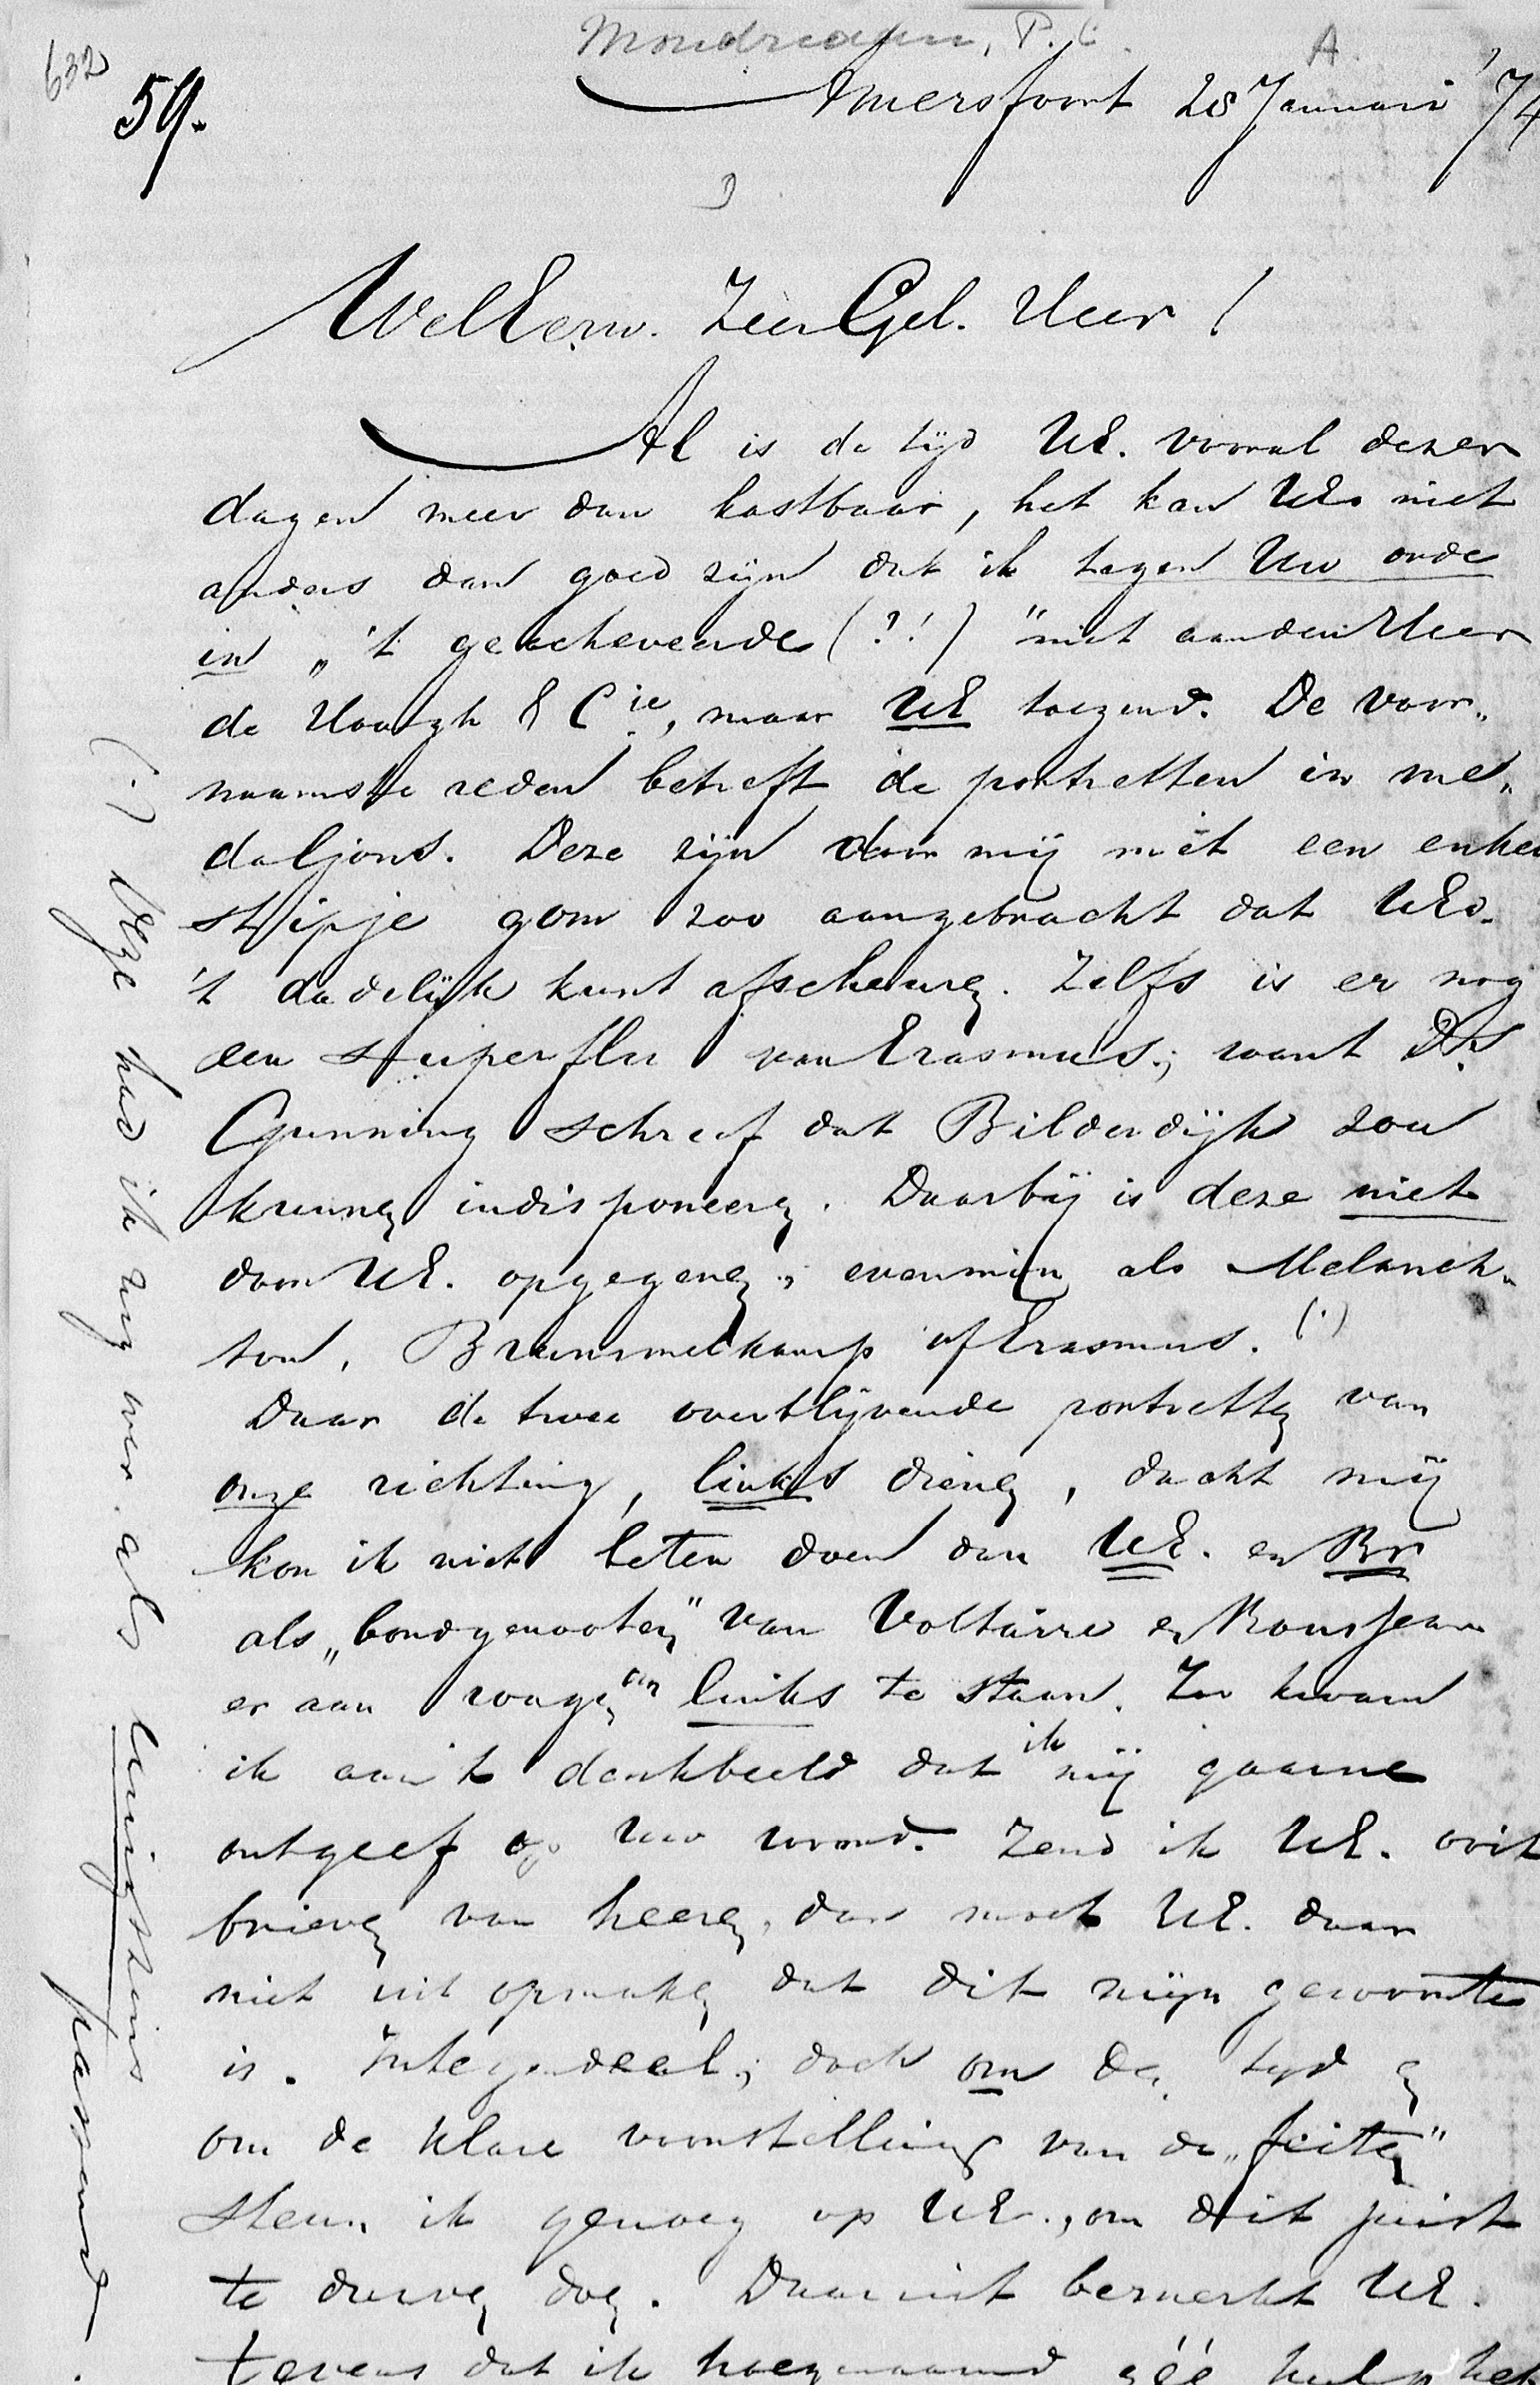 Mondriaan, P. C. A.
632
59.
Amersfoort 28 Januari '74
WelEerw. ZeerGel. Heer!
Al is de tijd UE. vooral dezer
dagen meer dan kostbaar, het kan UEd niet
anders dan goed zijn dat ik tegen Uw orde
in „'t gearcheveerde (?!)" niet aan den Heer
de Hoogh & Cie, maar UE toezend. De voor„
naamste reden betreft de portretten in me„
daljons. Deze zijn door mij met een enkel
stipje gom zoo aangebracht dat UEd.
't dadelijk kunt afscheuren. Zelfs is er nog
een superflu van Erasmus; want Ds.
Gunning schreef dat Bilderdijk zou
kunnen indisponeeren. Daarbij is deze niet
door UE. opgegeven, evenmin als Melanch„
ton, Brummelkamp of Erasmus. (.)
Daar de twee overblijvende portretten van
onze richting, links dienen, dacht mij
kon ik niet beter doen dan UE. en Br
als „bondgenooten" van Voltaire en Rousseau
er aan wagen om links te staan. Zoo kwam
ik aan 't denkbeeld dat ik mij gaarne
ontgeef op Uw woord. Zend ik UE. ooit
brieven van heeren, dan moet UE. daar
niet uit opmaken dat dit mijn gewoonte
is. Integendeel; doch om den tijd en
om de klare voorstelling van de „feiten"
steun ik genoeg op UE., om dit juist
te durven doen. Daaruit bemerkt UE.
tevens dat ik hoegenaamd géé hulp heb
(.) Deze had ik nog over als eenigszins passend.